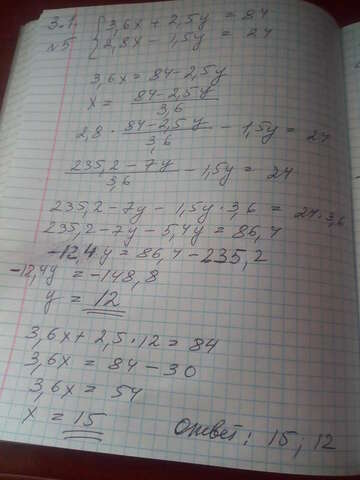 3.1. 3,6x + 2,5y = 84
№5 2,8x - 1,5y = 24
3,6x = 84 - 2,5y
x = (84 - 2,5y)/3,6
2,8 · (84 - 2,5y)/3,6 - 1,5y = 24
(235,2 - 7y)/3,6 - 1,5y = 24
235,2 - 7y - 1,5y · 3,6 = 24 · 3,6
235,2 - 7y - 5,4y = 86,4
-12,4y = 86,4 - 235,2
-12,4y = -148,8
y = 12
3,6x + 2,5 · 12 = 84
3,6x = 84 - 30
3,6x = 54
x = 15
Ответ: 15; 12